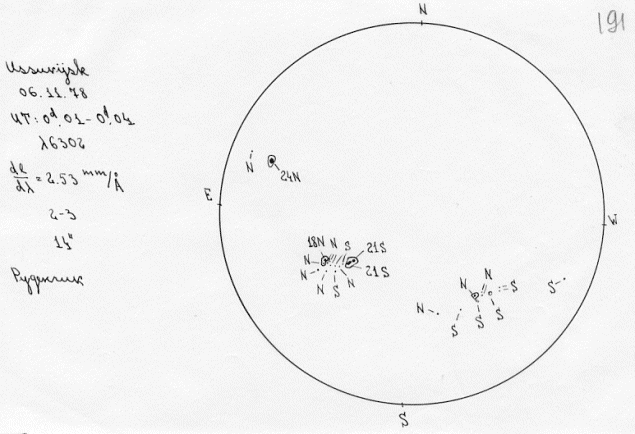 191
Ussurijsk
06.11.78
UT: 0ᵈ.01-0ᵈ.04
λ6302
dl/dλ = 2.53 mm/Å
2-3
14"
N
E
W
S
N
24N
18N N S 21S
N 21S
N N S N
N N S
N S S S
S